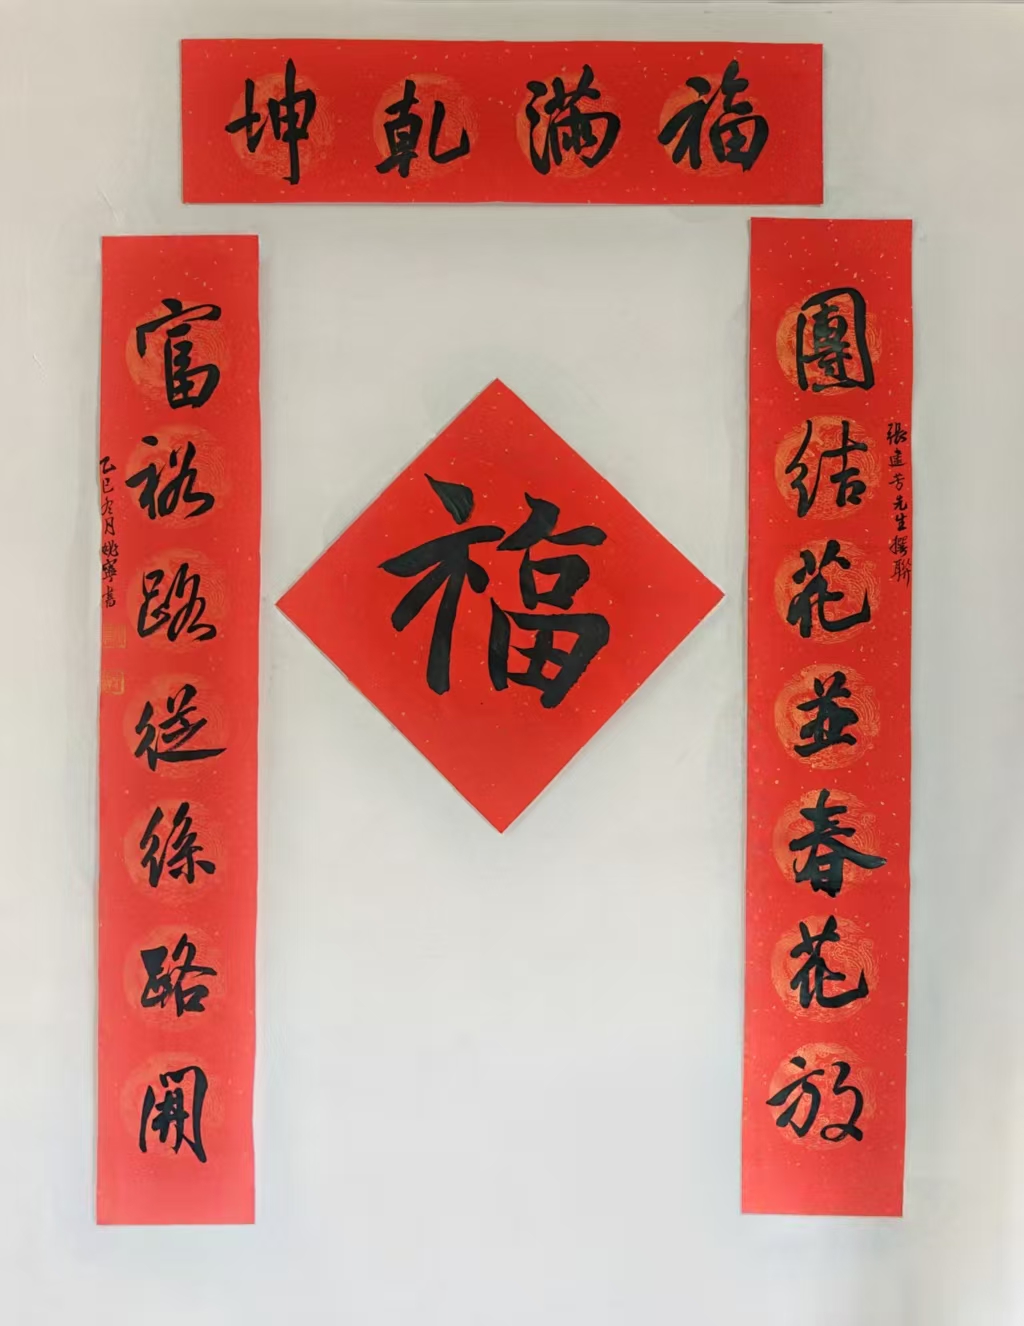 福滿乾坤
團結花並春花放
張建芳先生撰聯
福
富裕路從絲路開
乙巳冬月姚寧書